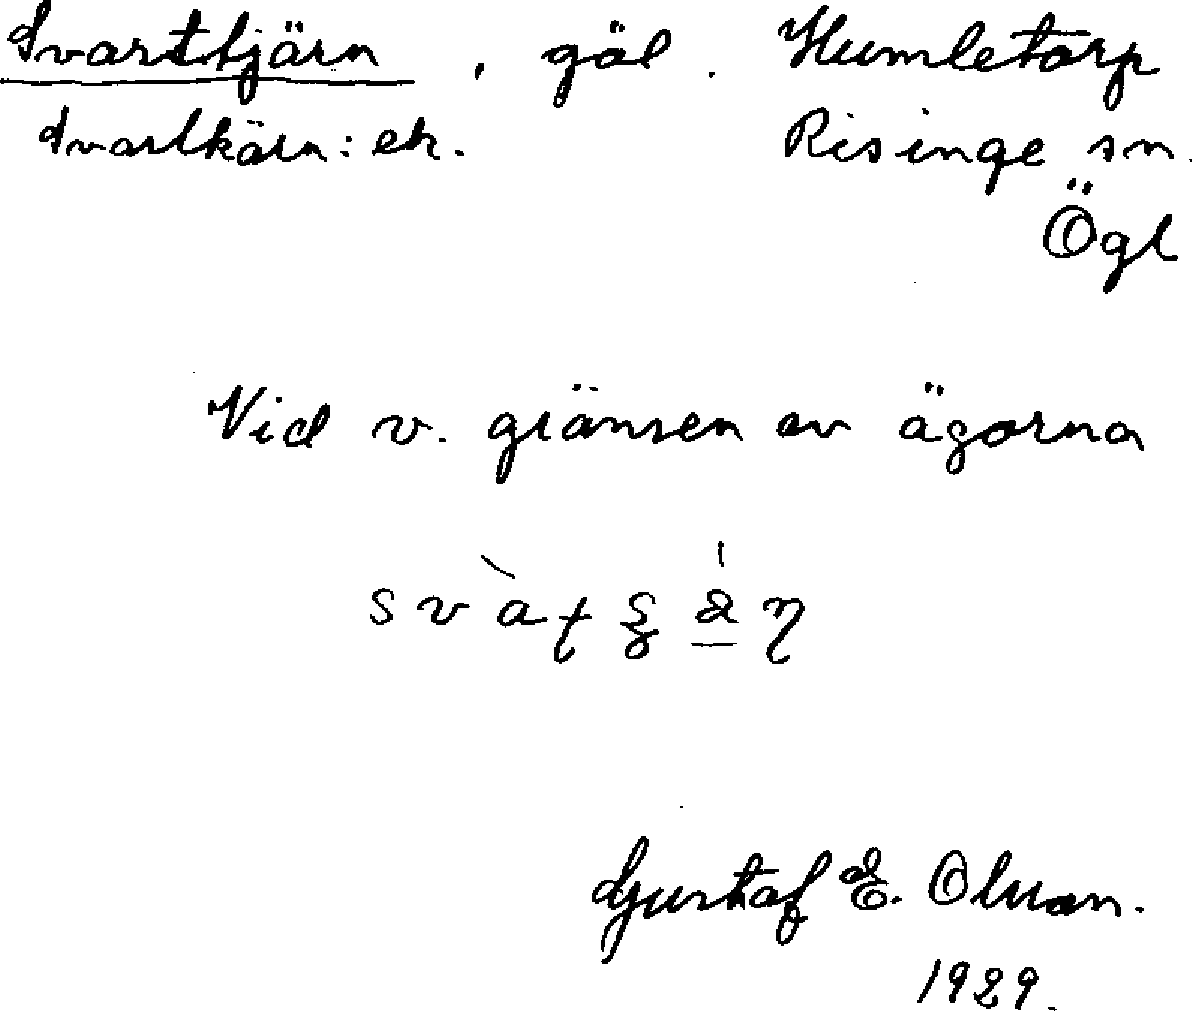 Svarttjärn, göl. Humletorp
Svartkärn: ek. Risinge sn.
Ögl
Vid v. gränsen av ägorna
Gustaf E. Olson.
1929.